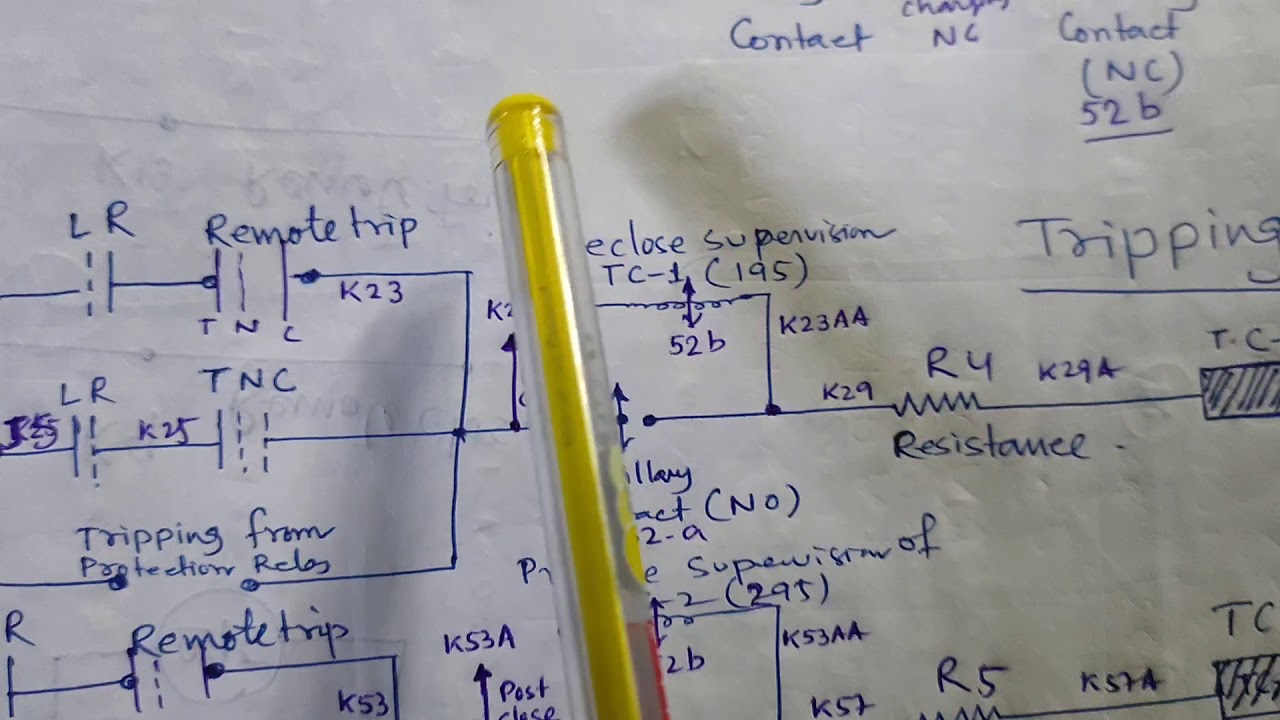 Contact
NC
Contact
(NC)
52b
L R
Remote trip
K23
T N C
eclose supervision
TC-1 (195)
52b
K23AA
Tripping
L R
T N C
K25
K29
R4
K29A
T.C-
Resistance
Tripping from
Protection Relay
illary
act (NO)
2-a
e supervision of
-2 (295)
R
Remote trip
K53
K53A
Post
close
2b
K53AA
K57
R5
K57A
TC